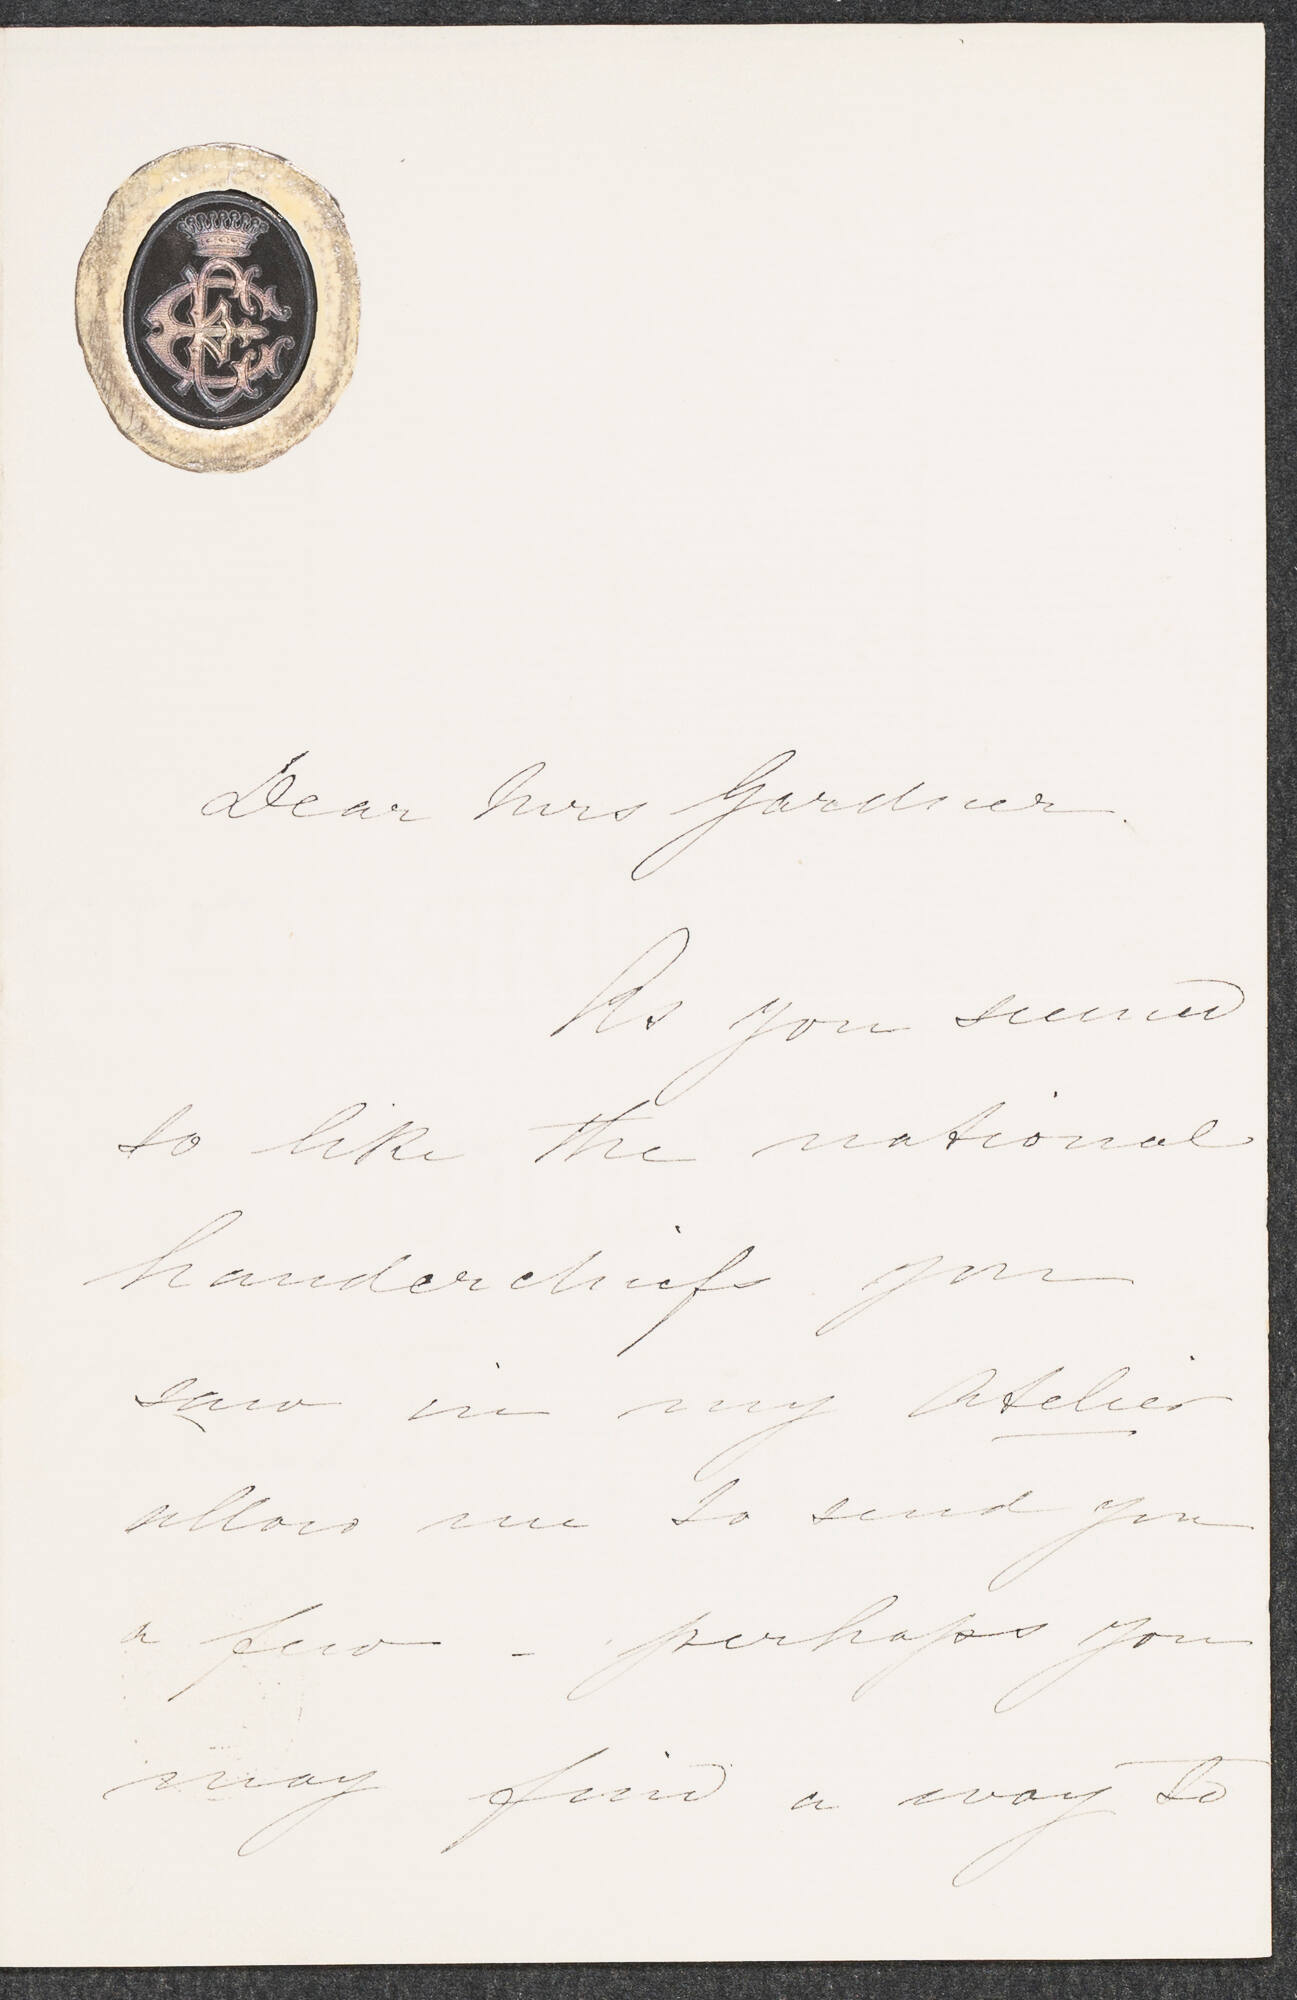 Dear Mrs Gardner.
As you seemed
to like the national
handerchiefs you
saw in my atelier
allow me to send you
a few - perhaps you
may find a way to